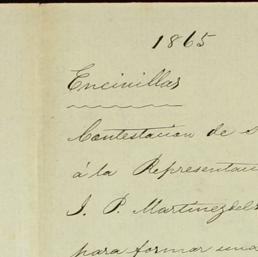 1865
Encinillas
Contestacion de s
á la Representaci
J. P. Martinez del
para formar una